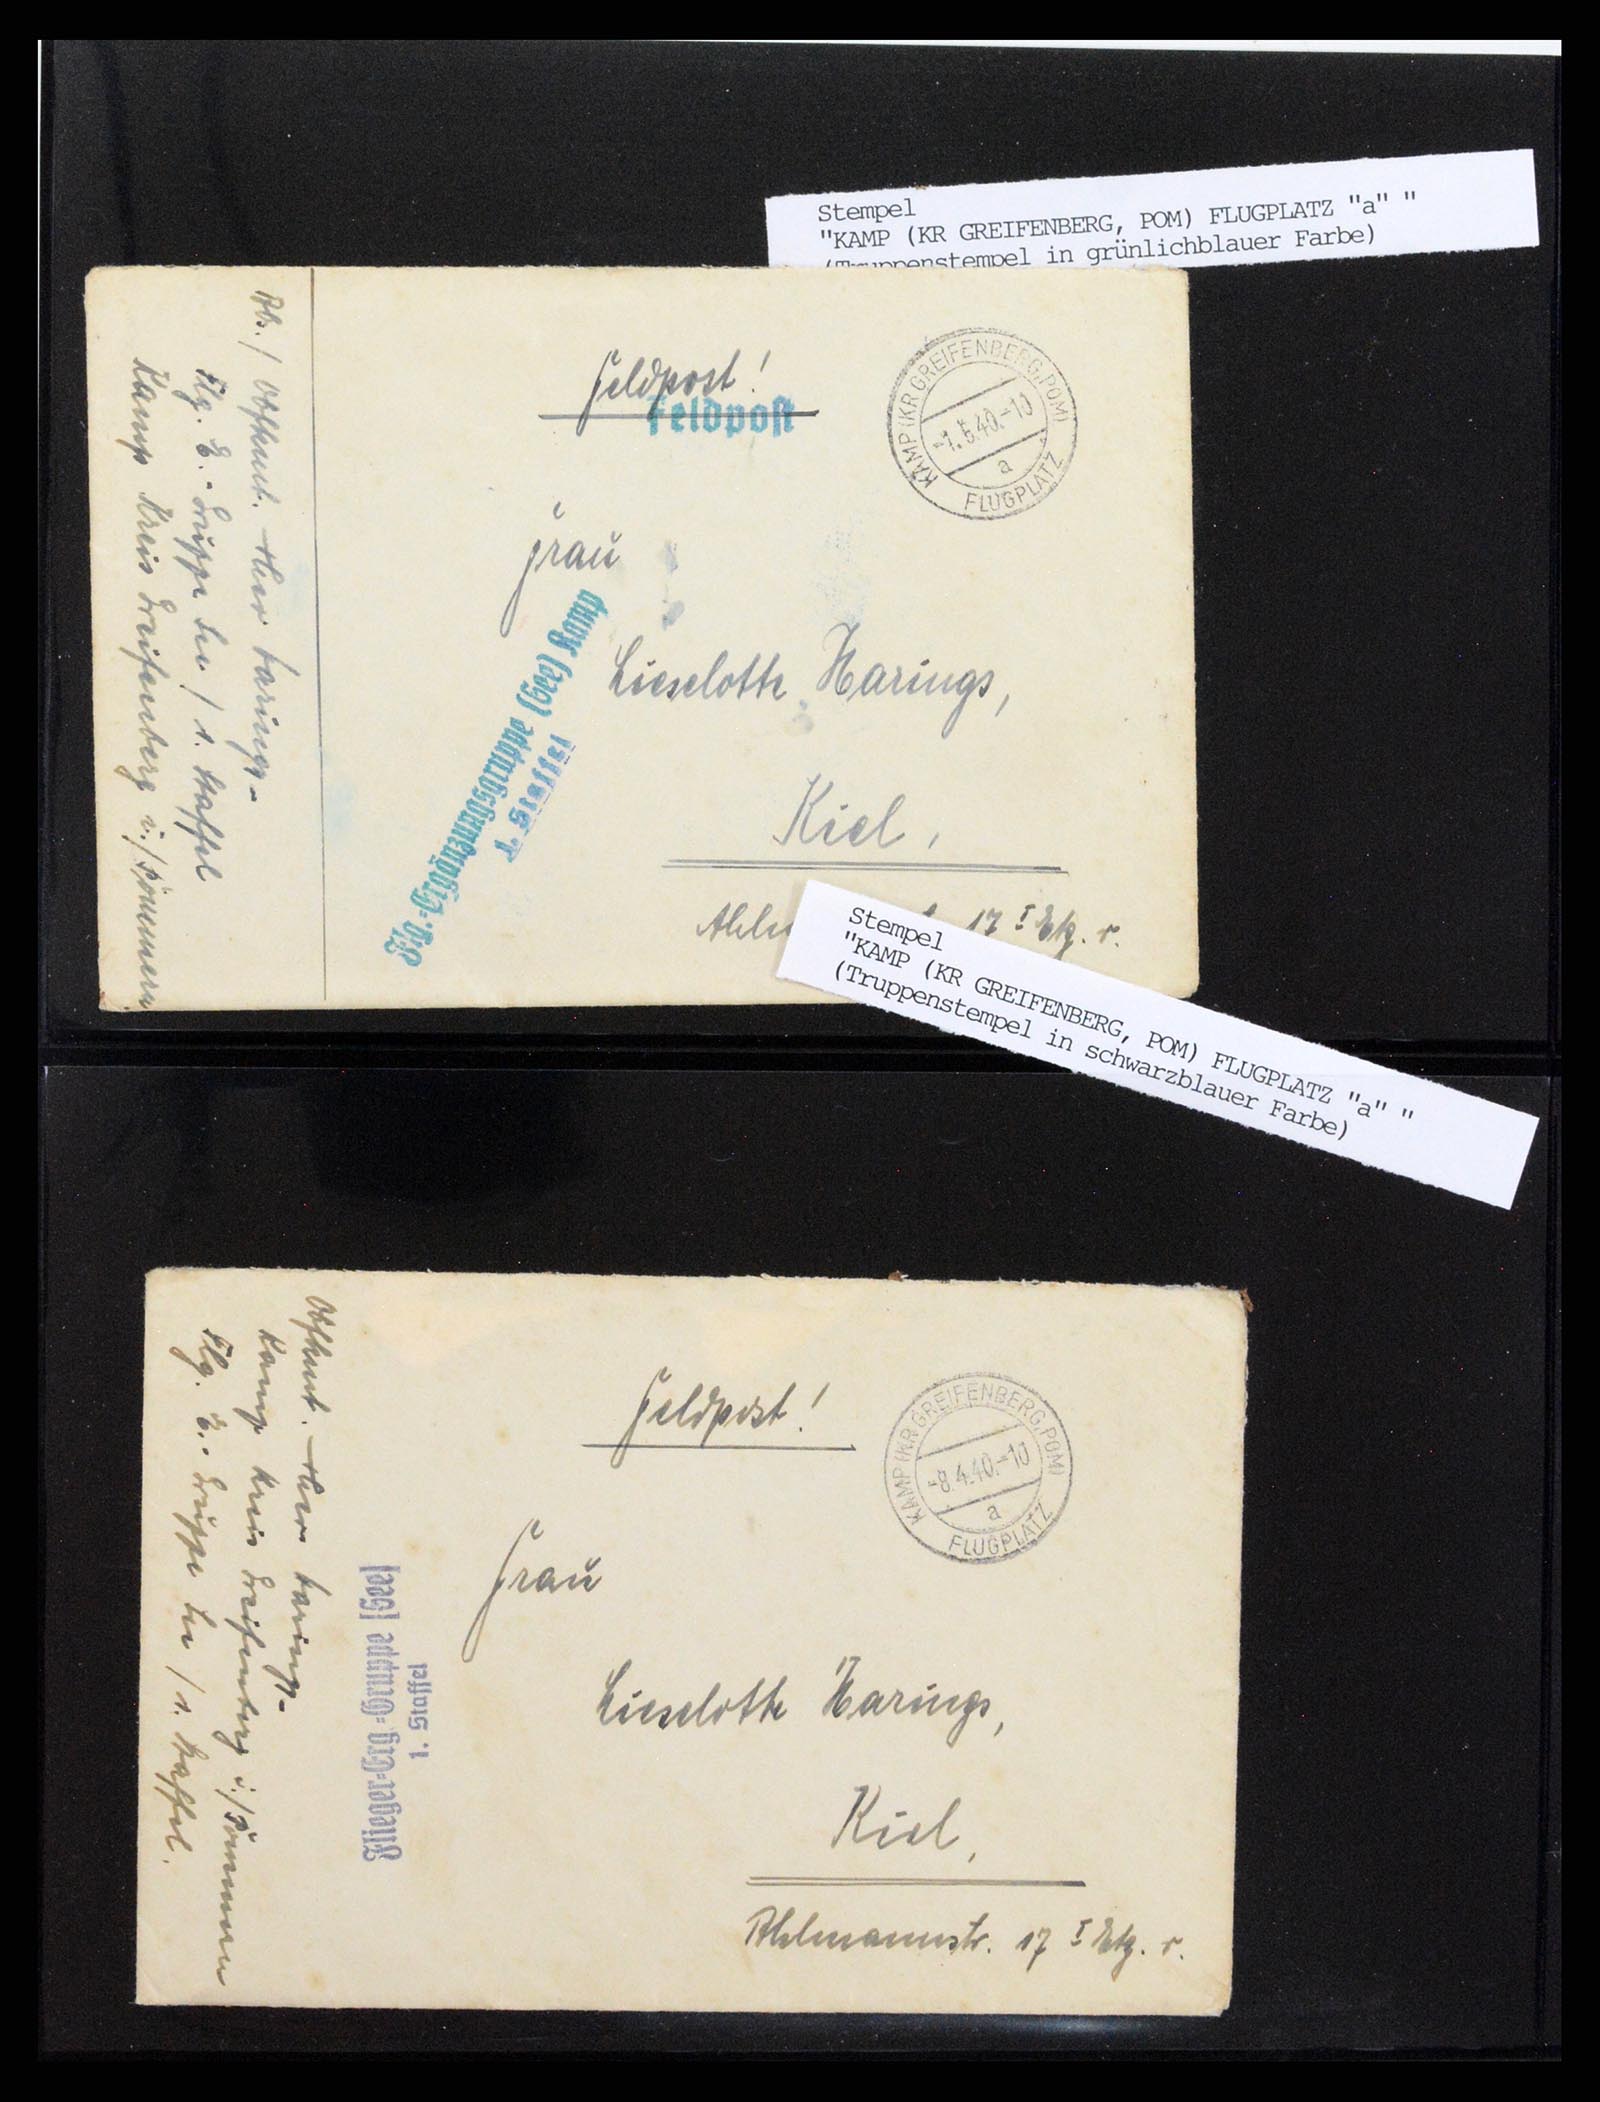 Stempel
"KAMP (KR GREIFENBERG, POM) FLUGPLATZ "a" "
(Truppenstempel in grünlichblauer Farbe)
Feldpost!
Feldpost
KAMP (KR GREIFENBERG, POM)
-1.5.40.-10
a
FLUGPLATZ
Abs./ Harings
Flg. E.-Gruppe See / 1. Staffel
Kamp Kreis Greifenberg i./Pommern
Frau
Lieselotte Harings,
Kiel,
17 I Etg. r.
Flg.-Ergänzungsgruppe (See) Kamp
1. Staffel
Stempel
"KAMP (KR GREIFENBERG, POM) FLUGPLATZ "a" "
(Truppenstempel in schwarzblauer Farbe)
Feldpost!
KAMP (KR GREIFENBERG, POM)
-8.4.40.-10
a
FLUGPLATZ
Harings
Kamp Kreis Greifenberg i./Pommern
Flg. E.-Gruppe See / 1. Staffel.
Flieger-Erg.-Gruppe (See)
1. Staffel
Frau
Lieselotte Harings,
Kiel,
Ahlmannstr. 17 I Etg. r.